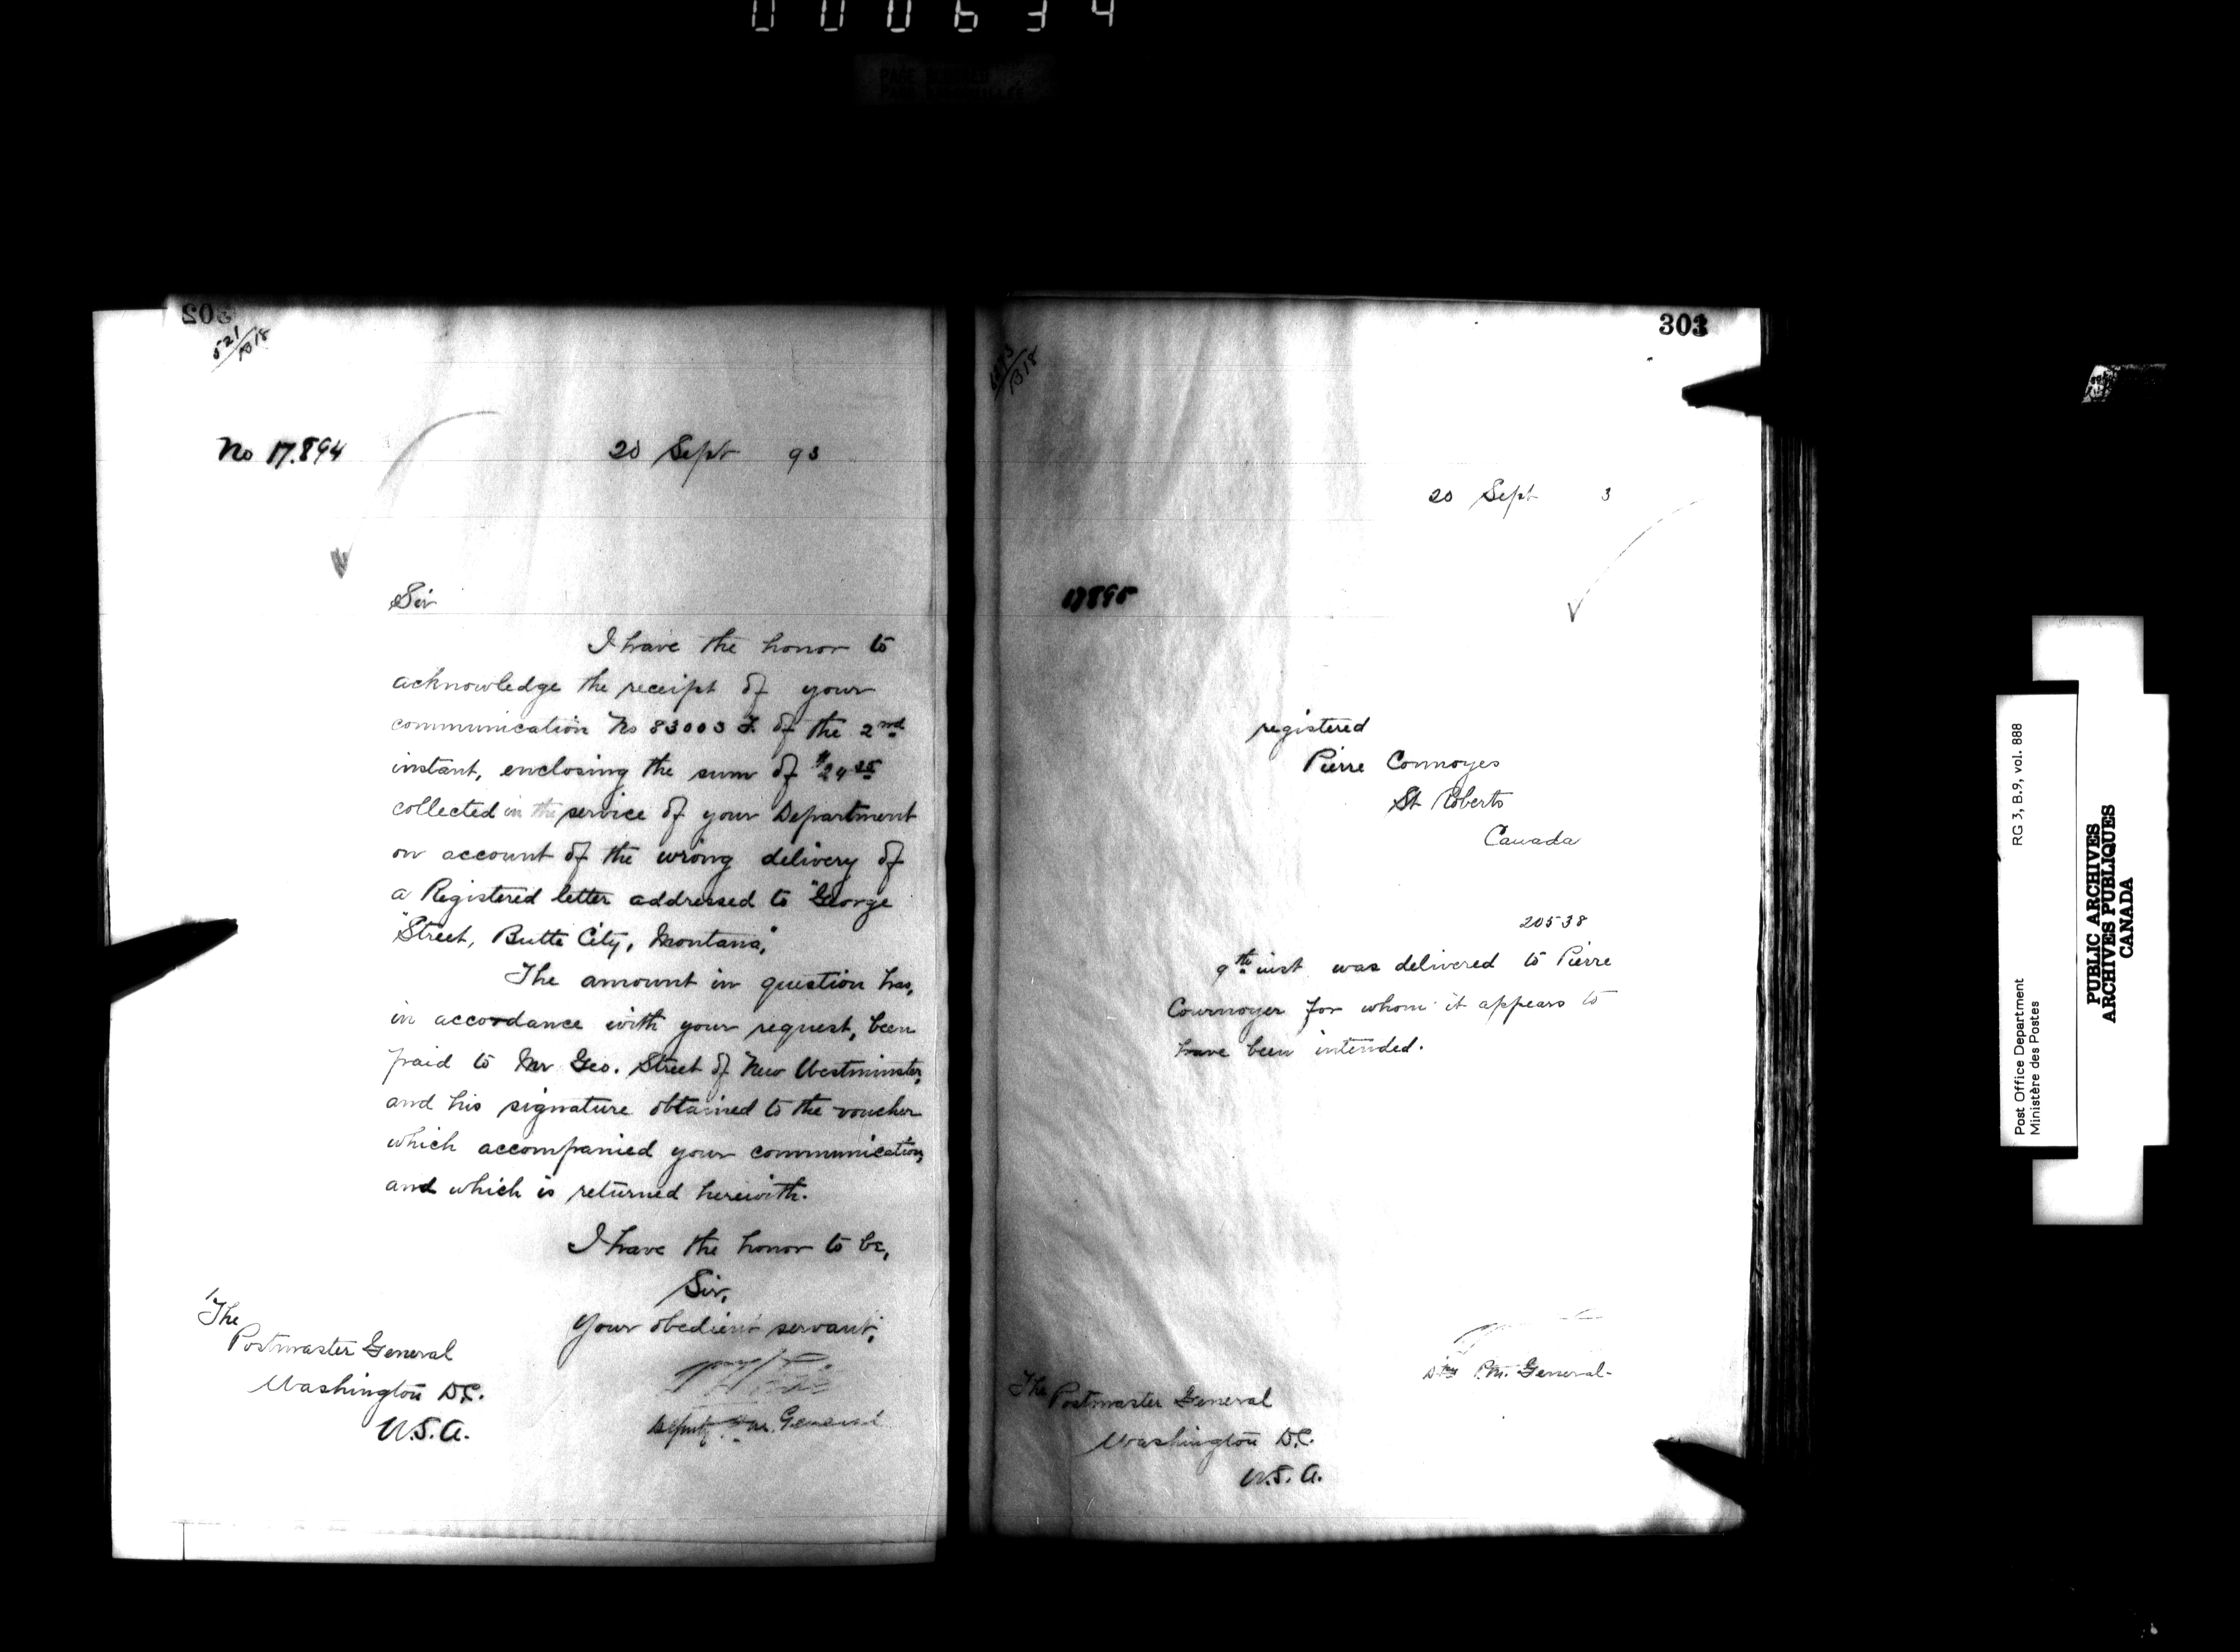 000634
302
521/1318
No 17.894 20 Sept 93
Sir
I have the honor to
acknowledge the receipt of your
communication No 83003 F. of the 2nd
instant, enclosing the sum of $24 25
collected in the service of your Department
on account of the wrong delivery of
a Registered letter addressed to "George
"Street, Butte City, Montana,"
The amount in question has,
in accordance with your request, been
paid to Mr Geo. Street of New Westminster,
and his signature obtained to the voucher
which accompanied your communication,
and which is returned herewith.
I have the honor to be,
Sir,
Your obedient servant,
Deputy P.M. General
The
Postmaster General
Washington D.C.
U.S.A.
303
20 Sept 3
17895
registered
Pierre Connoyes
St Roberts
Canada
20538
9th inst was delivered to Pierre
Cournoyer for whom it appears to
have been intended.
Dpy P.M. General-
The Postmaster General
Washington D.C.
U.S.A.
Post Office Department RG 3, B.9, vol. 888
Ministère des Postes
PUBLIC ARCHIVES
ARCHIVES PUBLIQUES
CANADA